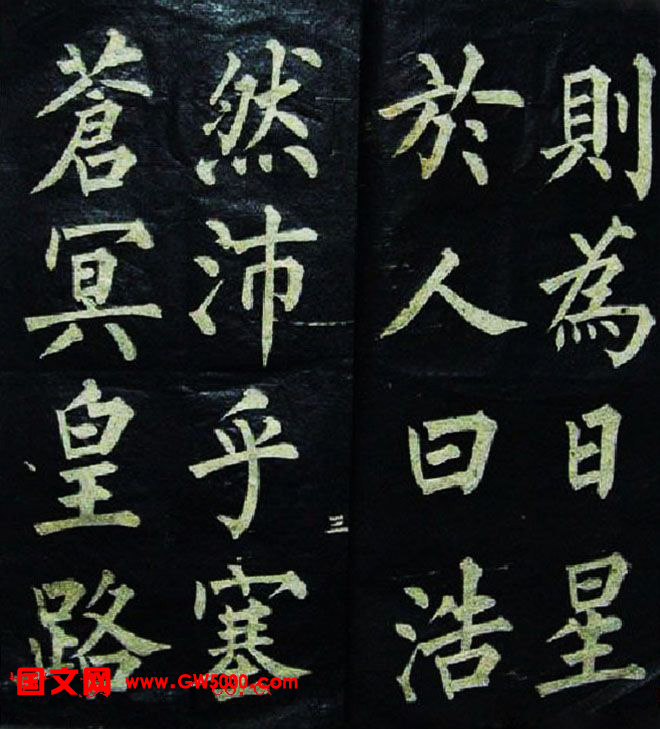 則為日星
於人曰浩
然沛乎塞
蒼冥皇路
三
国文网 www.GW5000.com